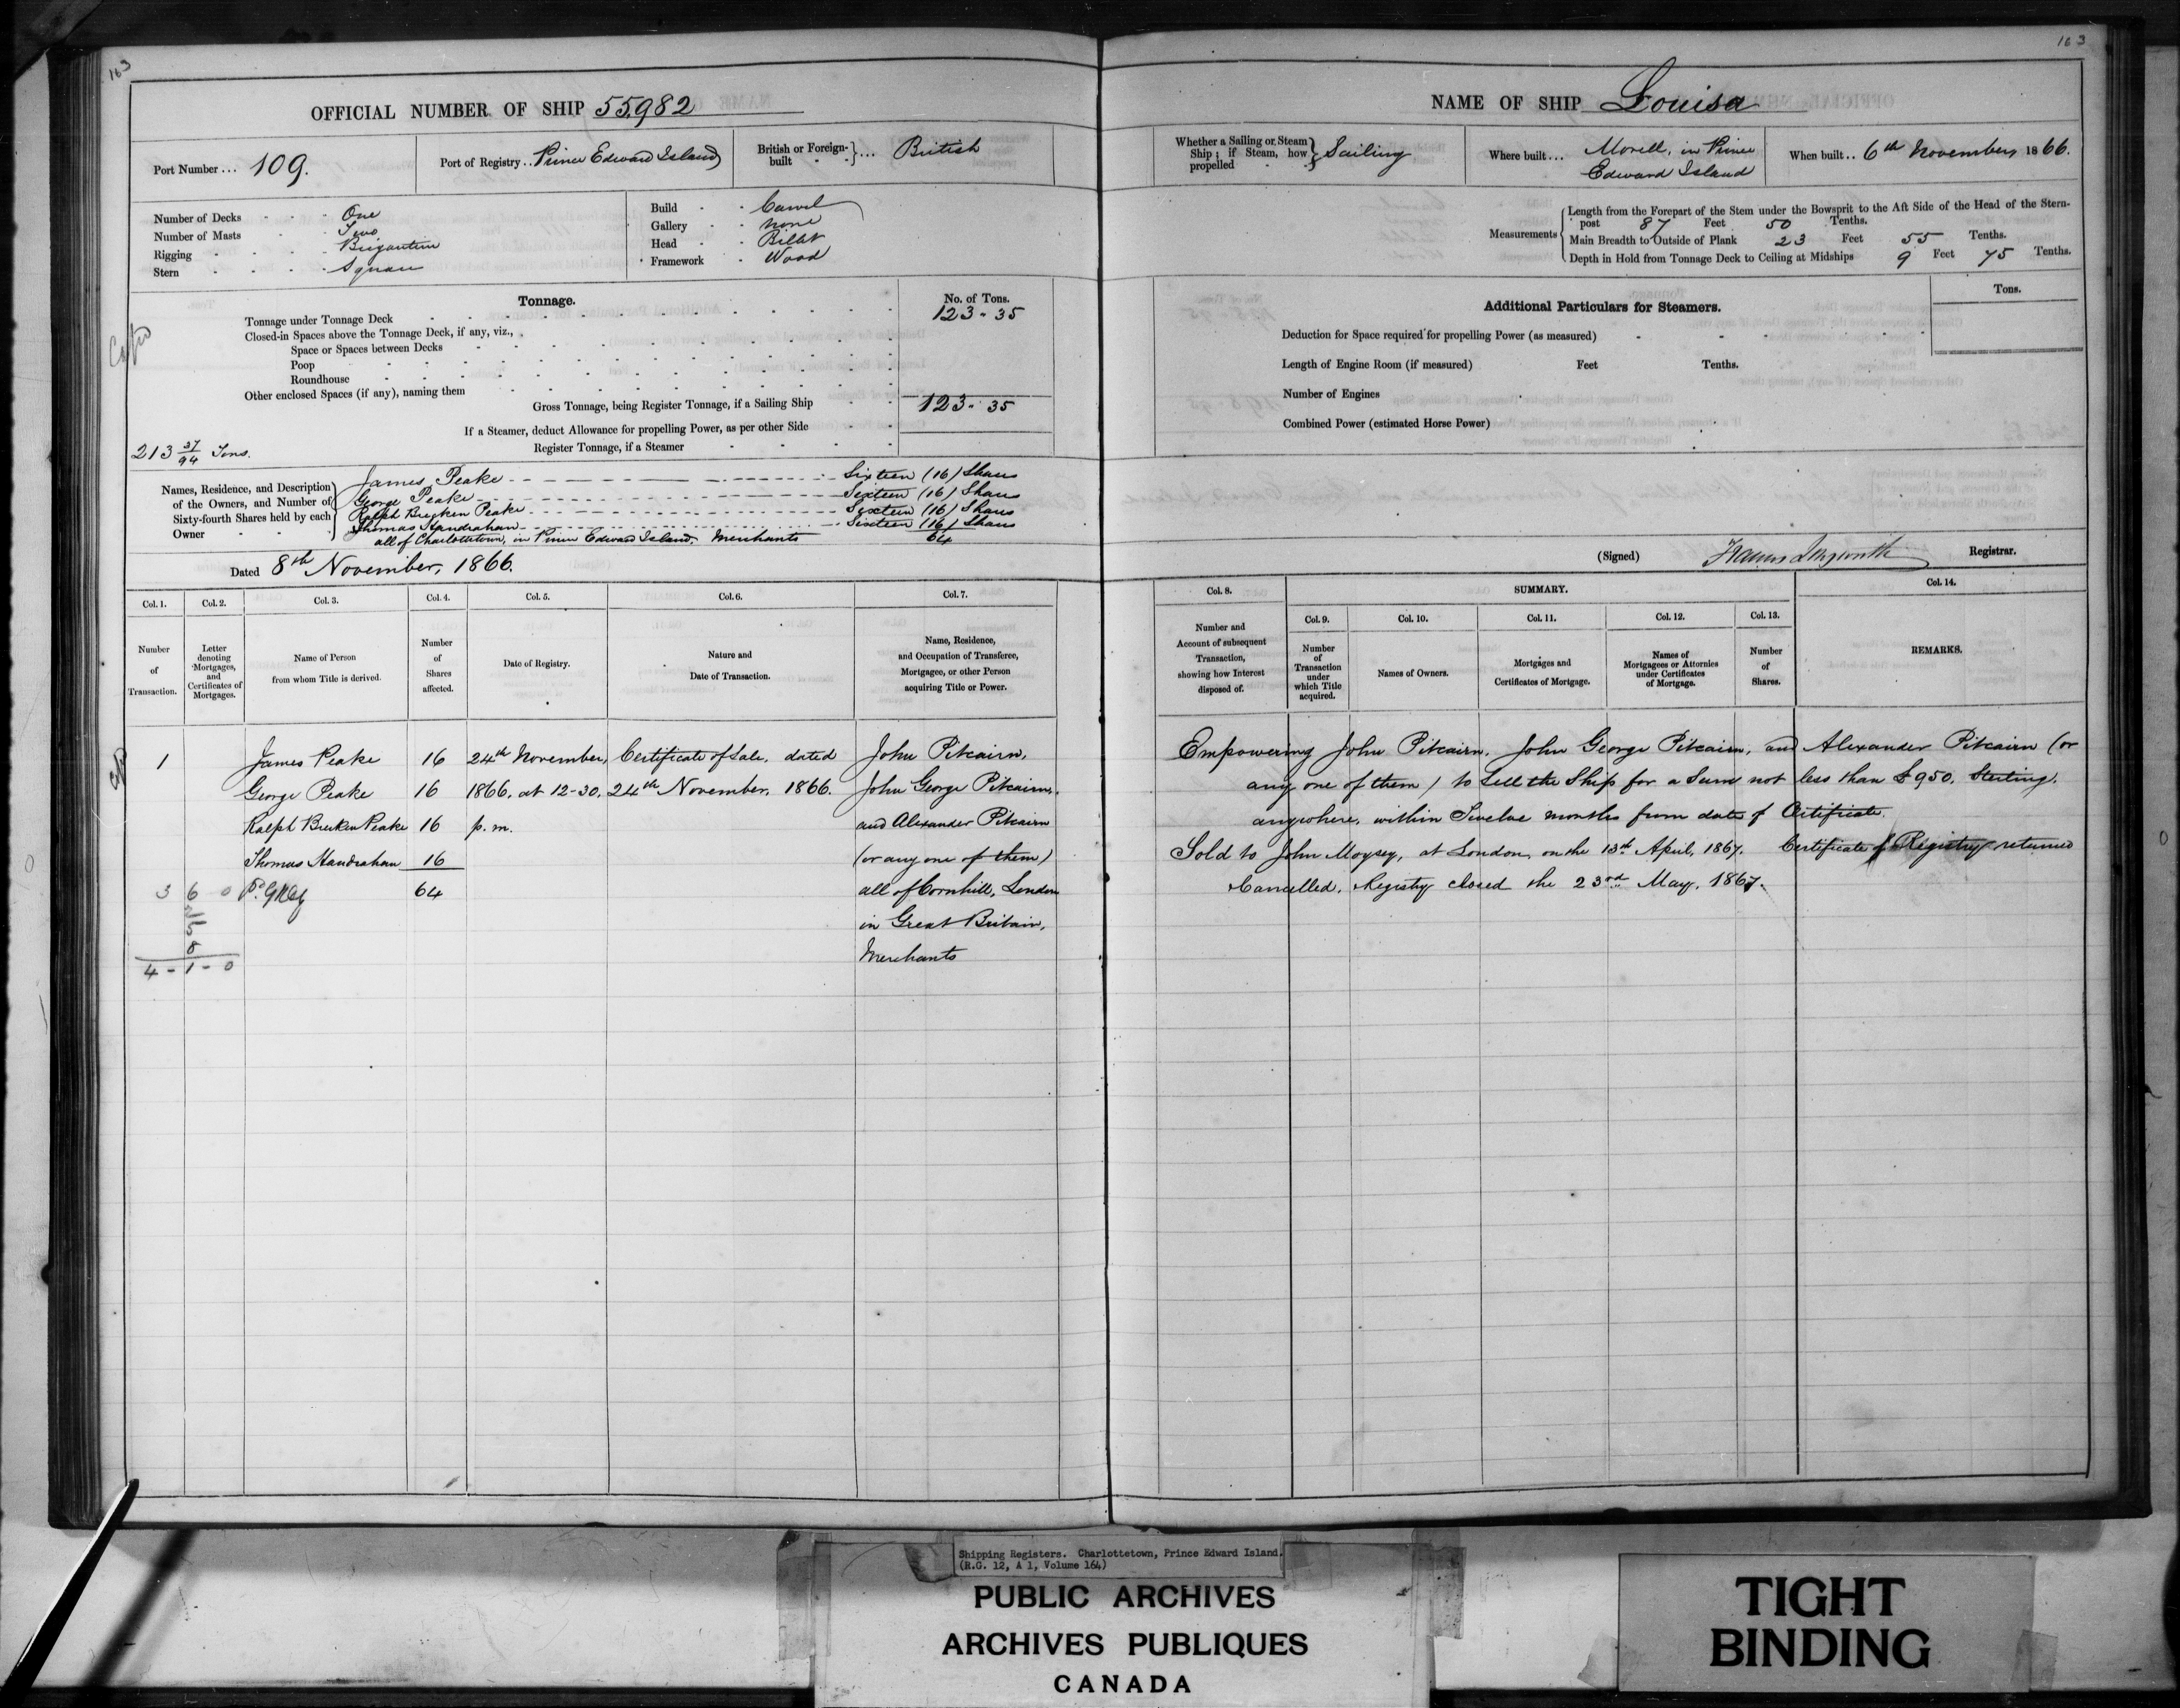 163
OFFICIAL NUMBER OF SHIP 55,982
Port Number ... 109.
Port of Registry .. Prince Edward Island
British or Foreign-built } ... British
Number of Decks - - - One
Number of Masts - - Two
Rigging - - - - Brigantine
Stern - - - - Square
Build - - Carvel
Gallery - - none
Head - - Billet
Framework - Wood
Tonnage.
No. of Tons.
Tonnage under Tonnage Deck 123 - 35
Closed-in Spaces above the Tonnage Deck, if any, viz.,
Space or Spaces between Decks
Poop
Roundhouse
Other enclosed Spaces (if any), naming them
Gross Tonnage, being Register Tonnage, if a Sailing Ship 123 - 35
If a Steamer, deduct Allowance for propelling Power, as per other Side
213 37/94 Tons.
Register Tonnage, if a Steamer
Names, Residence, and Description of the Owners, and Number of Sixty-fourth Shares held by each Owner
James Peake - - - Sixteen (16) Shares
George Peake - - - Sixteen (16) Shares
Ralph Brecken Peake - - - Sixteen (16) Shares
Thomas Handrahan - - - Sixteen (16) Shares
all of Charlottetown, in Prince Edward Island, Merchants 64
Dated 8th November, 1866.
Col. 1. Col. 2. Col. 3. Col. 4. Col. 5. Col. 6. Col. 7.
Number of Transaction.
Letter denoting Mortgages, and Certificates of Mortgages.
Name of Person from whom Title is derived.
Number of Shares affected.
Date of Registry.
Nature and Date of Transaction.
Name, Residence, and Occupation of Transferee, Mortgagee, or other Person acquiring Title or Power.
1 James Peake 16 24th November, Certificate of Sale, dated John Pitcairn,
George Peake 16 1866, at 12-30, 24th November, 1866. John George Pitcairn,
Ralph Brecken Peake 16 p.m. and Alexander Pitcairn
Thomas Handrahan 16 (or any one of them)
3 6 0 64 all of Cornhill, London
in Great Britain,
Merchants
4 - 1 - 0
163
NAME OF SHIP Louisa
Whether a Sailing or Steam Ship; if Steam, how propelled } Sailing
Where built ... Morell, in Prince
Edward Island
When built .. 6th November, 1866.
Measurements
Length from the Forepart of the Stem under the Bowsprit to the Aft Side of the Head of the Stern-
post 87 Feet 50 Tenths.
Main Breadth to Outside of Plank 23 Feet 55 Tenths.
Depth in Hold from Tonnage Deck to Ceiling at Midships 9 Feet 75 Tenths.
Additional Particulars for Steamers.
Tons.
Deduction for Space required for propelling Power (as measured)
Length of Engine Room (if measured) Feet Tenths.
Number of Engines
Combined Power (estimated Horse Power)
(Signed) Francis Longworth Registrar.
Col. 8.
SUMMARY.
Col. 14.
Col. 9. Col. 10. Col. 11. Col. 12. Col. 13.
Number and Account of subsequent Transaction, showing how Interest disposed of.
Number of Transaction under which Title acquired.
Names of Owners.
Mortgages and Certificates of Mortgage.
Names of Mortgagees or Attornies under Certificates of Mortgage.
Number of Shares.
REMARKS.
Empowering John Pitcairn, John George Pitcairn, and Alexander Pitcairn (or
any one of them) to Sell the Ship for a Sum not less than £950, Sterling,
anywhere, within Twelve months from date of Certificate.
Sold to John Moysey, at London, on the 13th April, 1867. Certificate of Registry returned
Cancelled. Registry closed the 23rd May, 1867.
Shipping Registers. Charlottetown, Prince Edward Island.
(R.G. 12, A 1, Volume 164)
PUBLIC ARCHIVES
ARCHIVES PUBLIQUES
CANADA
TIGHT
BINDING